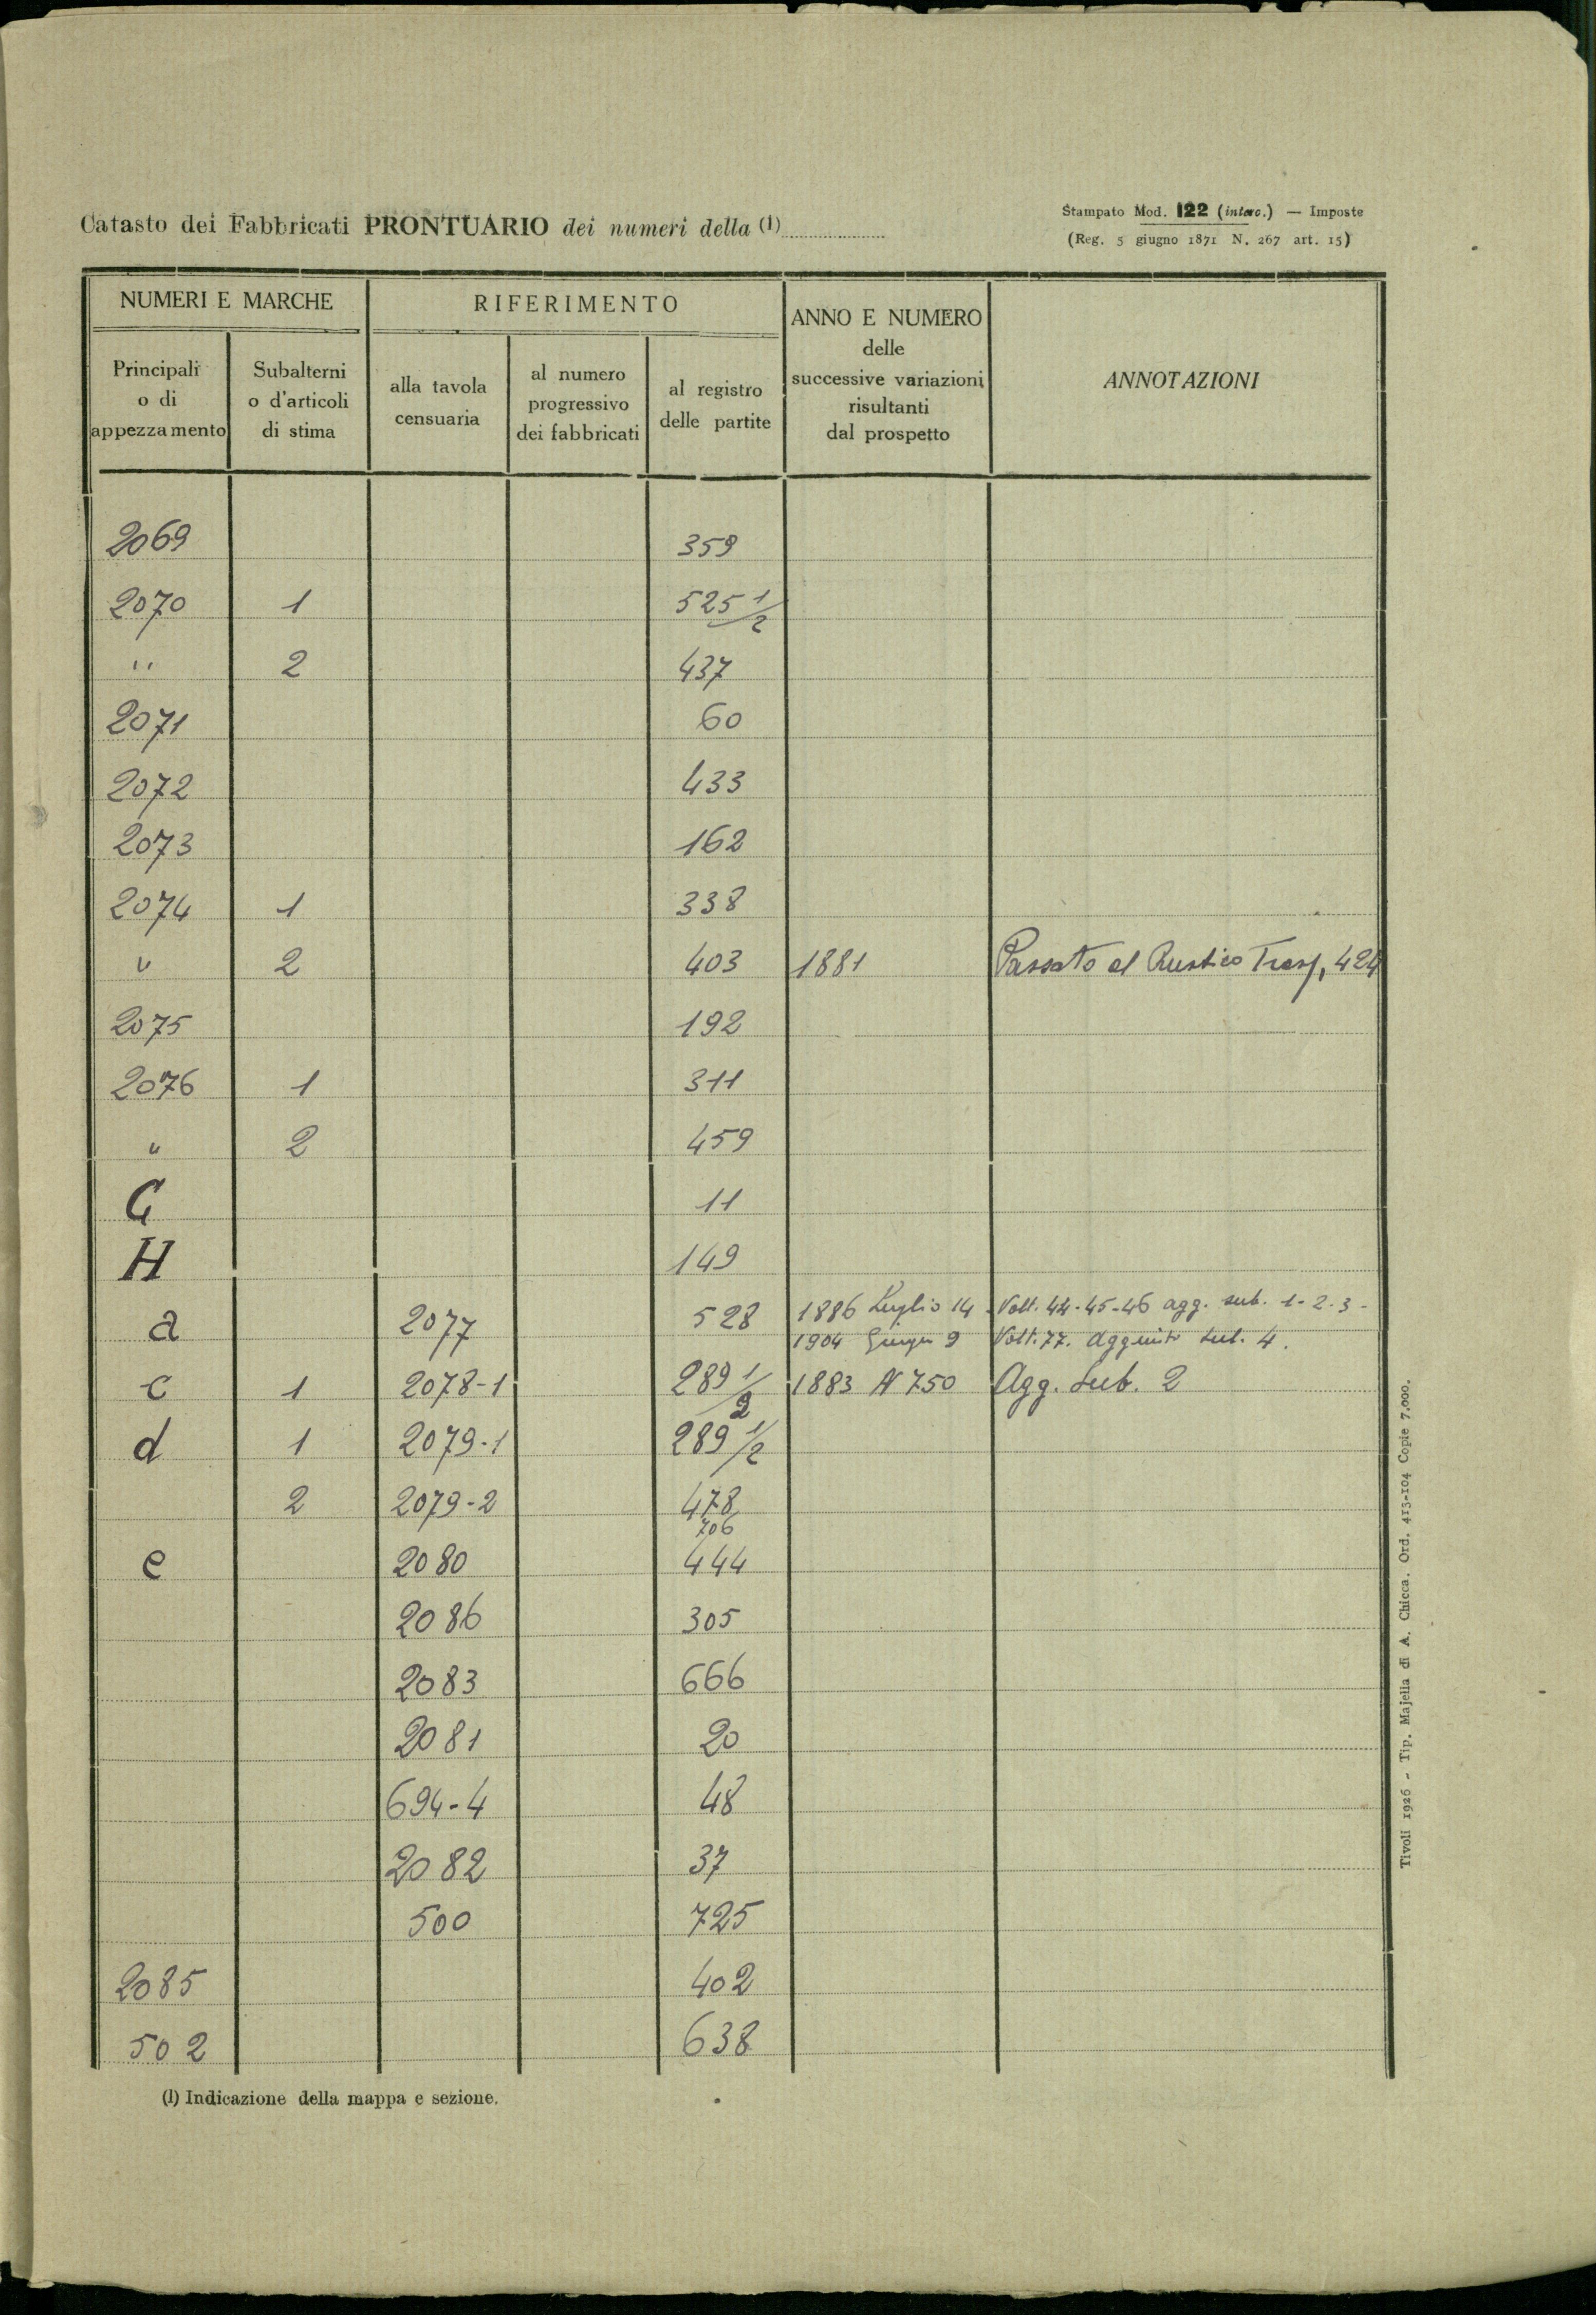 Catasto dei Fabbricati PRONTUARIO dei numeri della (1)
Stampato Mod. 122 (interc.) — Imposte
(Reg. 5 giugno 1871 N. 267 art. 15)
NUMERI E MARCHE
RIFERIMENTO
ANNO E NUMERO
delle
successive variazioni
risultanti
dal prospetto
ANNOTAZIONI
Principali
o di
appezzamento
Subalterni
o d'articoli
di stima
alla tavola
censuaria
al numero
progressivo
dei fabbricati
al registro
delle partite
2069 359
2070 1 525 1/2
" 2 437
2071 60
2072 433
2073 162
2074 1 338
" 2 403 1881 Passato al Rustico Trasp, 424
2075 192
2076 1 311
" 2 459
G 11
H 149
a 2077 528 1886 Luglio 14 - Volt. 44-45-46 agg. sub. 1-2-3-
1904 Giugn 9 Volt. 77. Aggiunto sub. 4.
c 1 2078-1 289 1/2 1883 N 750 Agg. Sub. 2
d 1 2079-1 289 1/2
2 2079-2 478
706
e 2080 444
2086 305
2083 666
2081 20
694-4 48
2082 37
500 725
2085 402
502 638
(1) Indicazione della mappa e sezione.
Tivoli 1926 - Tip. Majella di A. Chicca. Ord. 413-104 Copie 7.000.